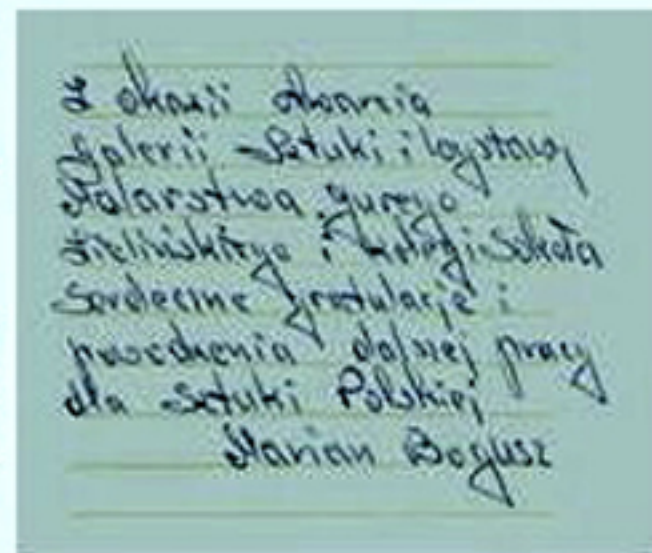 Z okazji otwarcia
Galerii Sztuki i Wystawy
Malarstwa Jurego
Zielińskiego i kolegi Sokoła
Serdeczne gratulacje i
powodzenia dalszej pracy
dla Sztuki Polskiej
Marian Bogusz